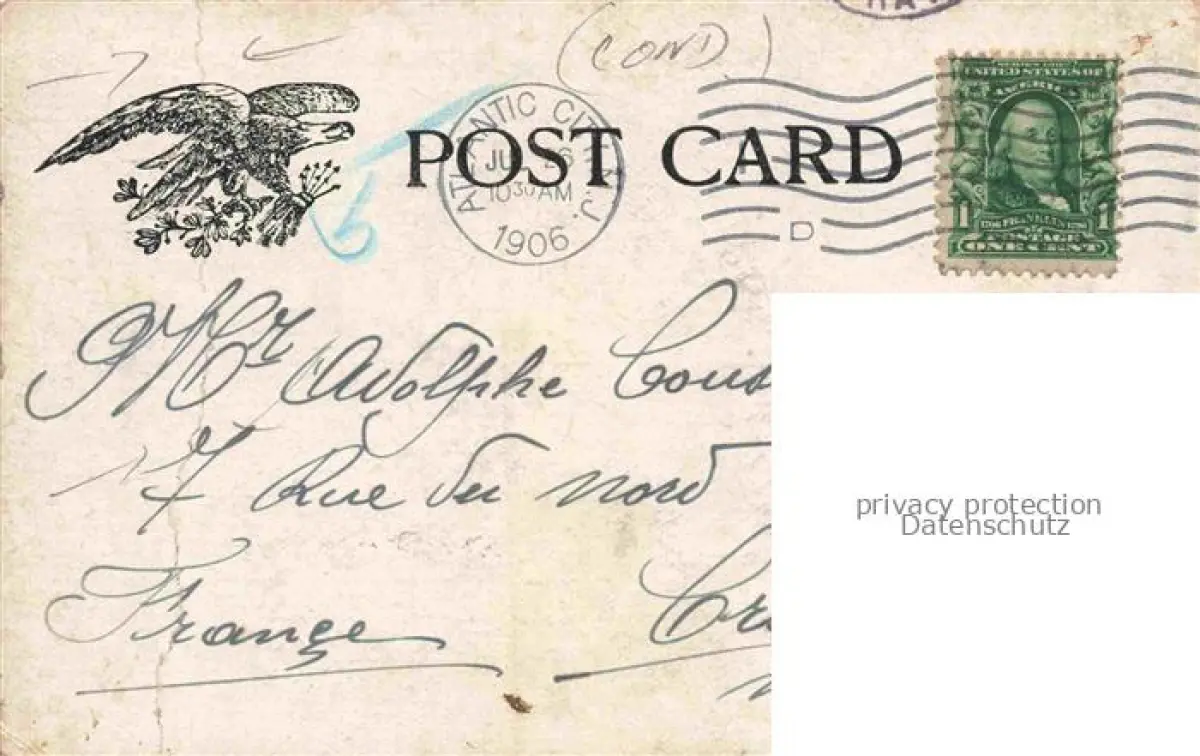 (COND)
POST CARD
ATLANTIC CITY, N.J.
10 30 AM
1906
D
UNITED STATES OF
AMERICA
1 FRANKLIN 1
POSTAGE
ONE CENT
Mr Adolphe Cous
7 Rue du nord
Françe
privacy protection
Datenschutz